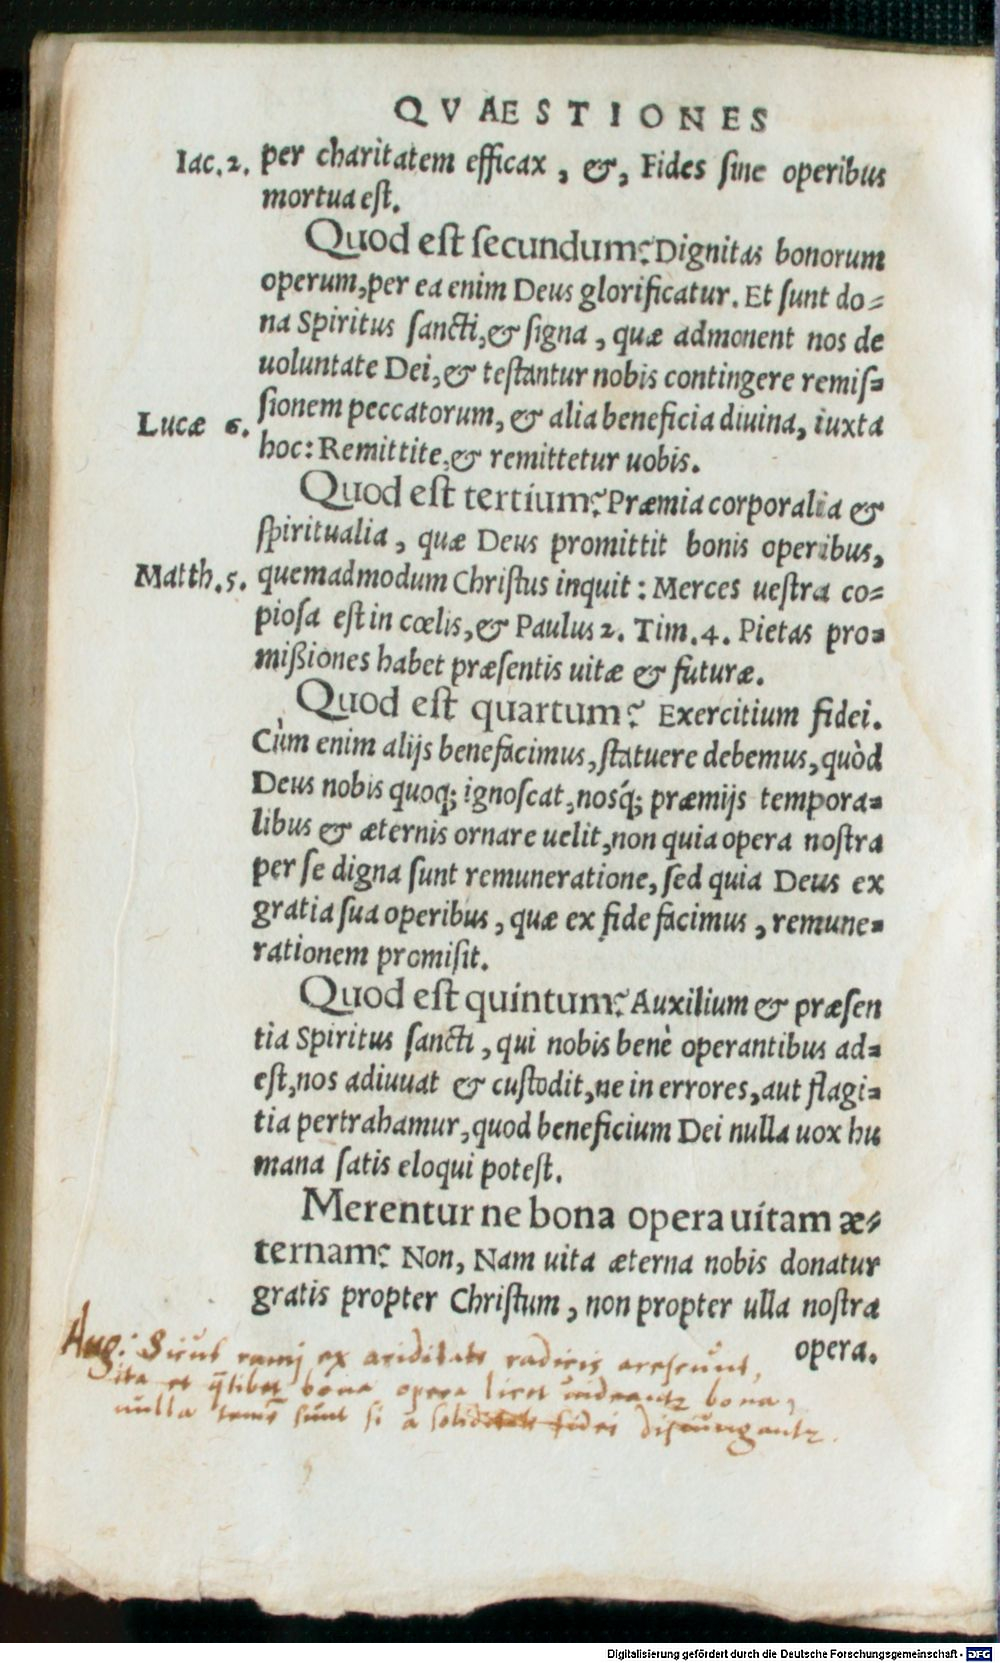 QVAESTIONES
Iac.2. per charitatem efficax, &, Fides ſine operibus
mortua eſt.
Quod eſt ſecundum? Dignitas bonorum
operum, per ea enim Deus glorificatur. Et ſunt do=
na Spiritus ſancti, & ſigna, quæ admonent nos de
uoluntate Dei, & teſtantur nobis contingere remiſ=
ſionem peccatorum, & alia beneficia diuina, iuxta
Lucæ 6. hoc: Remittite, & remittetur uobis.
Quod eſt tertium? Præmia corporalia &
ſpiritualia, quæ Deus promittit bonis operibus,
Matth.5. quemadmodum Chriſtus inquit: Merces ueſtra co=
pioſa eſt in cœlis, & Paulus 2. Tim. 4. Pietas pro=
mißiones habet præſentis uitæ & futuræ.
Quod eſt quartum? Exercitium fidei.
Cùm enim alijs benefacimus, ſtatuere debemus, quòd
Deus nobis quoq; ignoſcat, nosq́; præmijs tempora=
libus & æternis ornare uelit, non quia opera noſtra
per ſe digna ſunt remuneratione, ſed quia Deus ex
gratia ſua operibus, quæ ex fide facimus, remune=
rationem promiſit.
Quod eſt quintum? Auxilium & præſen
tia Spiritus ſancti, qui nobis benè operantibus ad=
eſt, nos adiuuat & cuſtodit, ne in errores, aut flagi=
tia pertrahamur, quod beneficium Dei nulla uox hu
mana ſatis eloqui poteſt.
Merentur ne bona opera uitam æ=
ternam? Non, Nam uita æterna nobis donatur
gratis propter Chriſtum, non propter ulla noſtra
opera.
Aug: Sicut ramj ex ariditate radicis arescunt,
ita et bona opera licet uideantur bona,
nulla sunt si a soliditate fidei disiungantur.
Digitalisierung gefördert durch die Deutsche Forschungsgemeinschaft - DFG